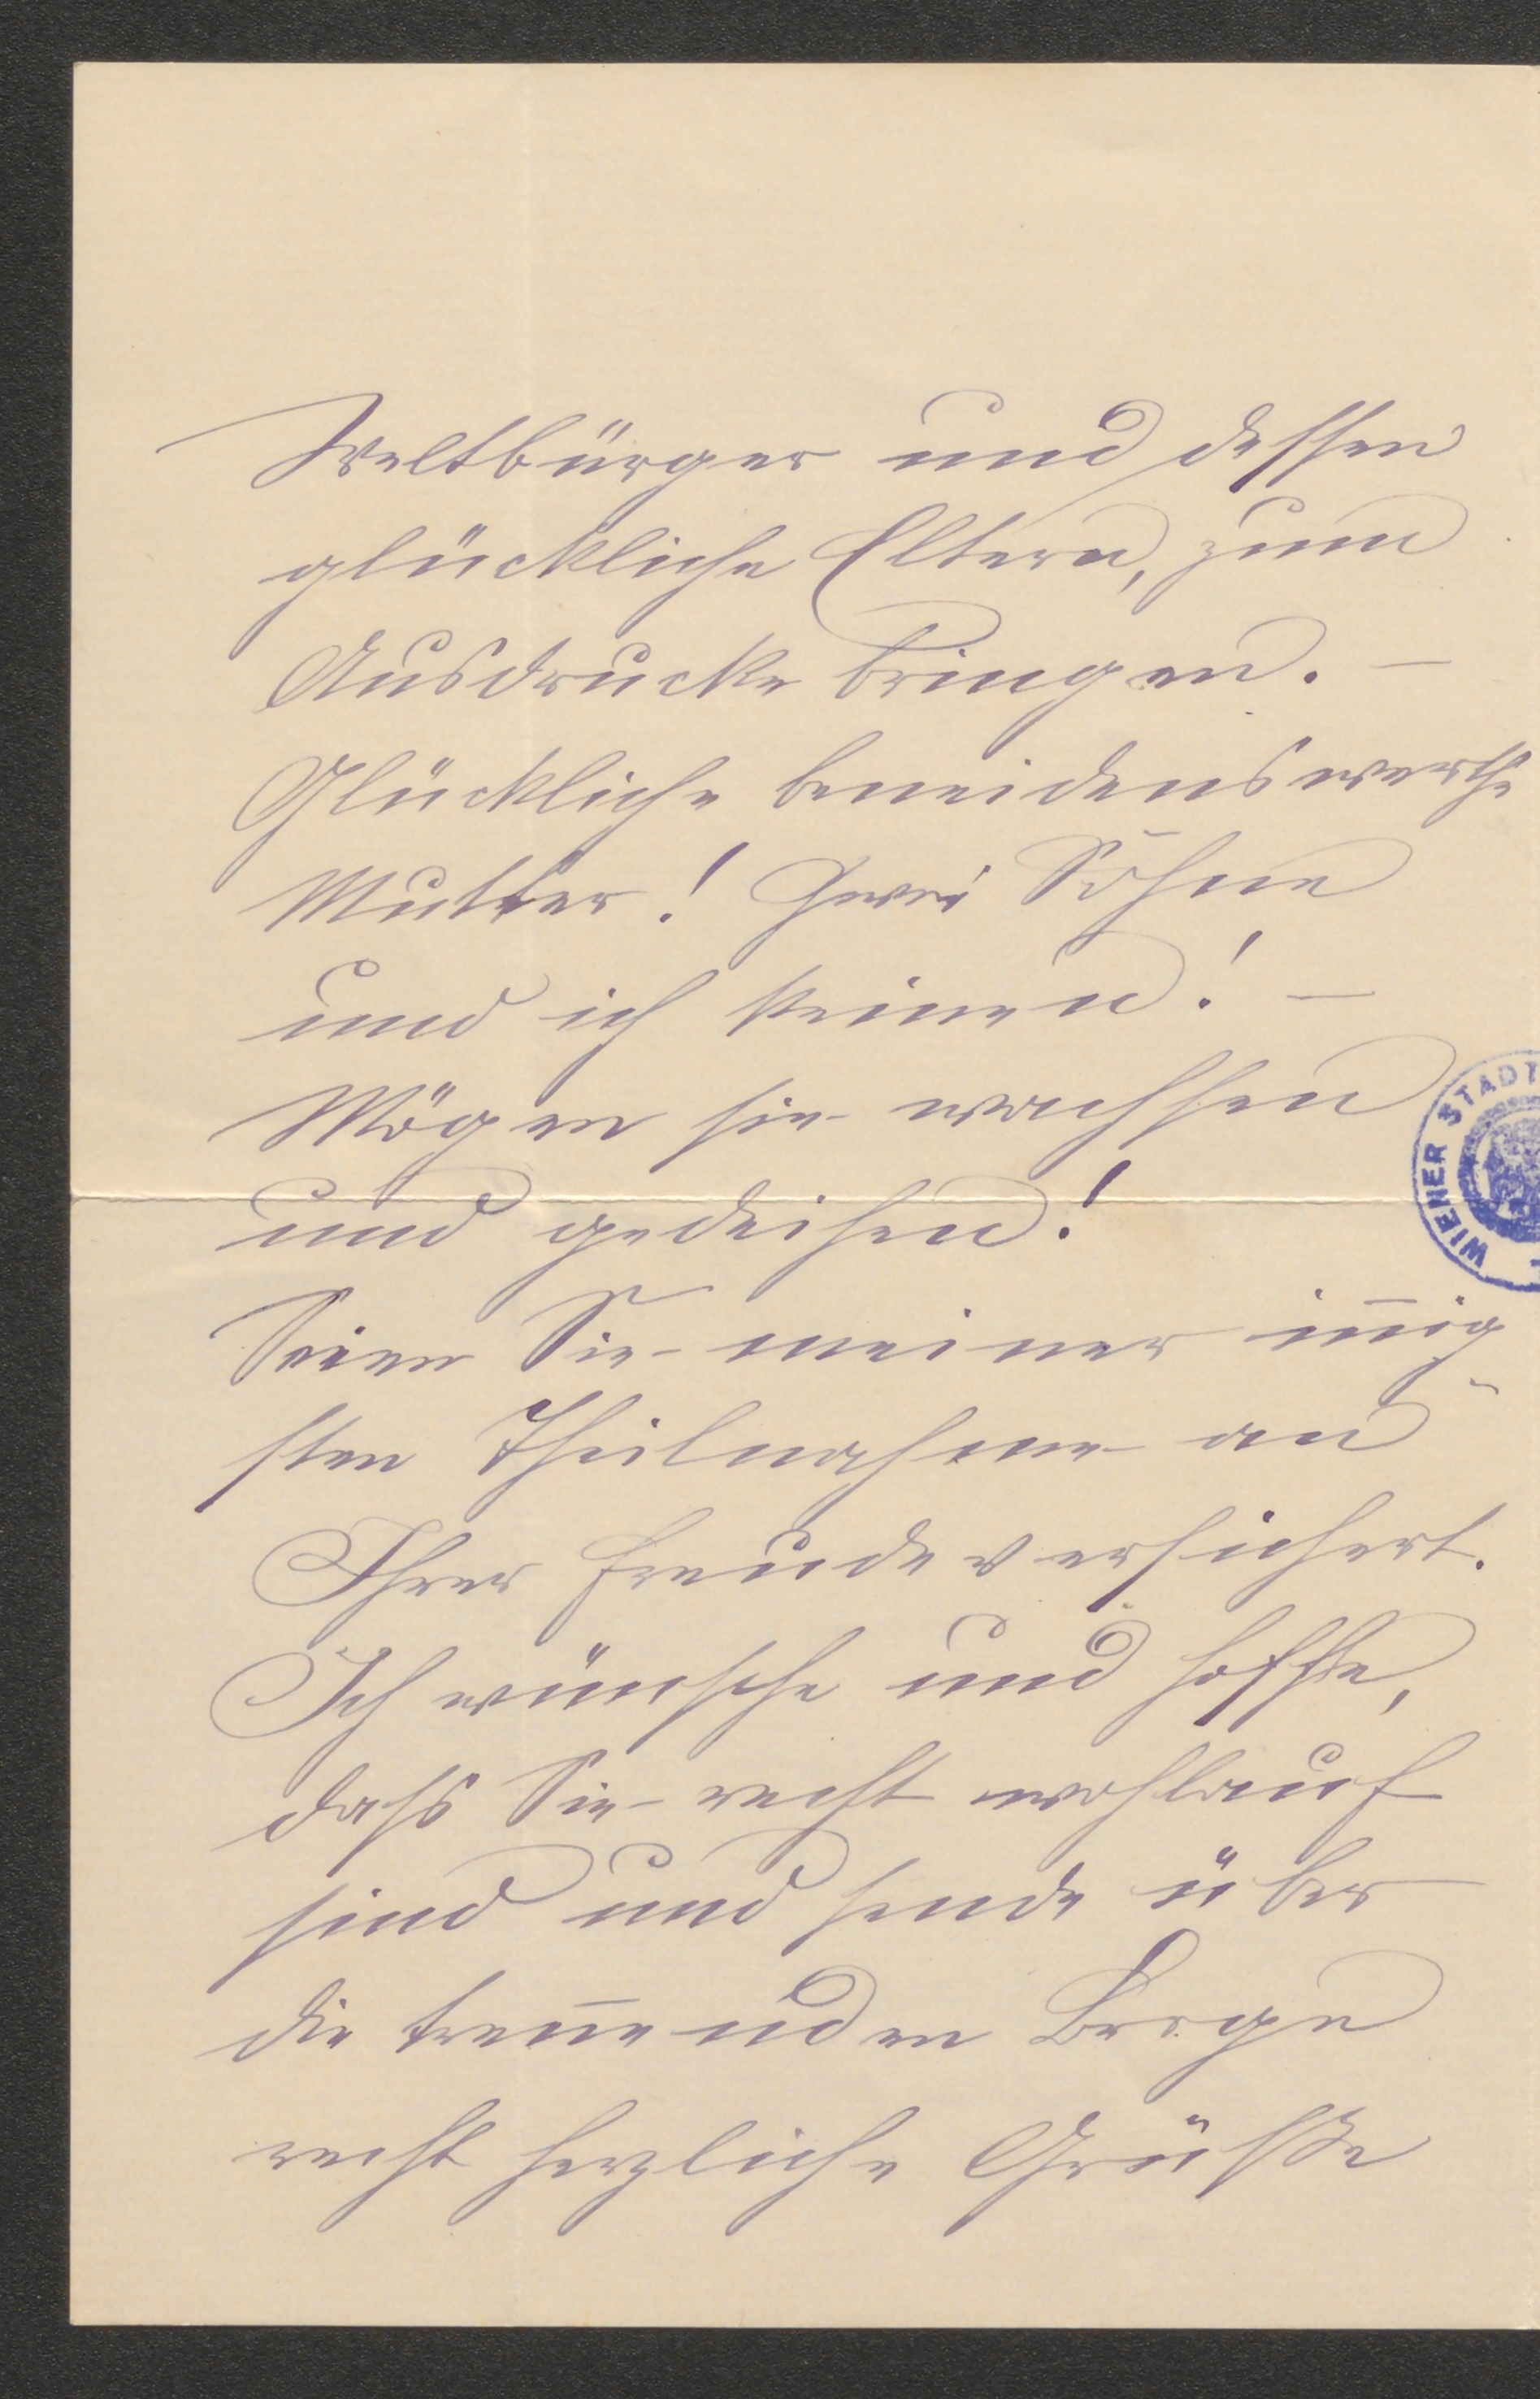 Weltbürger und dessen
glückliche Eltern, zum
Ausdrucke bringen. —
Glückliche beneidenswerthe
Mutter! Zwei Söhne
und ich keinen! —
Mögen sie wachsen
und gedeihen!
Seien Sie meiner iñig
sten Theilnahme an
Ihrer Freude versichert.
Ich wünsche und hoffe,
dass Sie recht wohlauf
sind und sende über
die treñenden Berge
recht herzliche Grüße
WIENER STADT